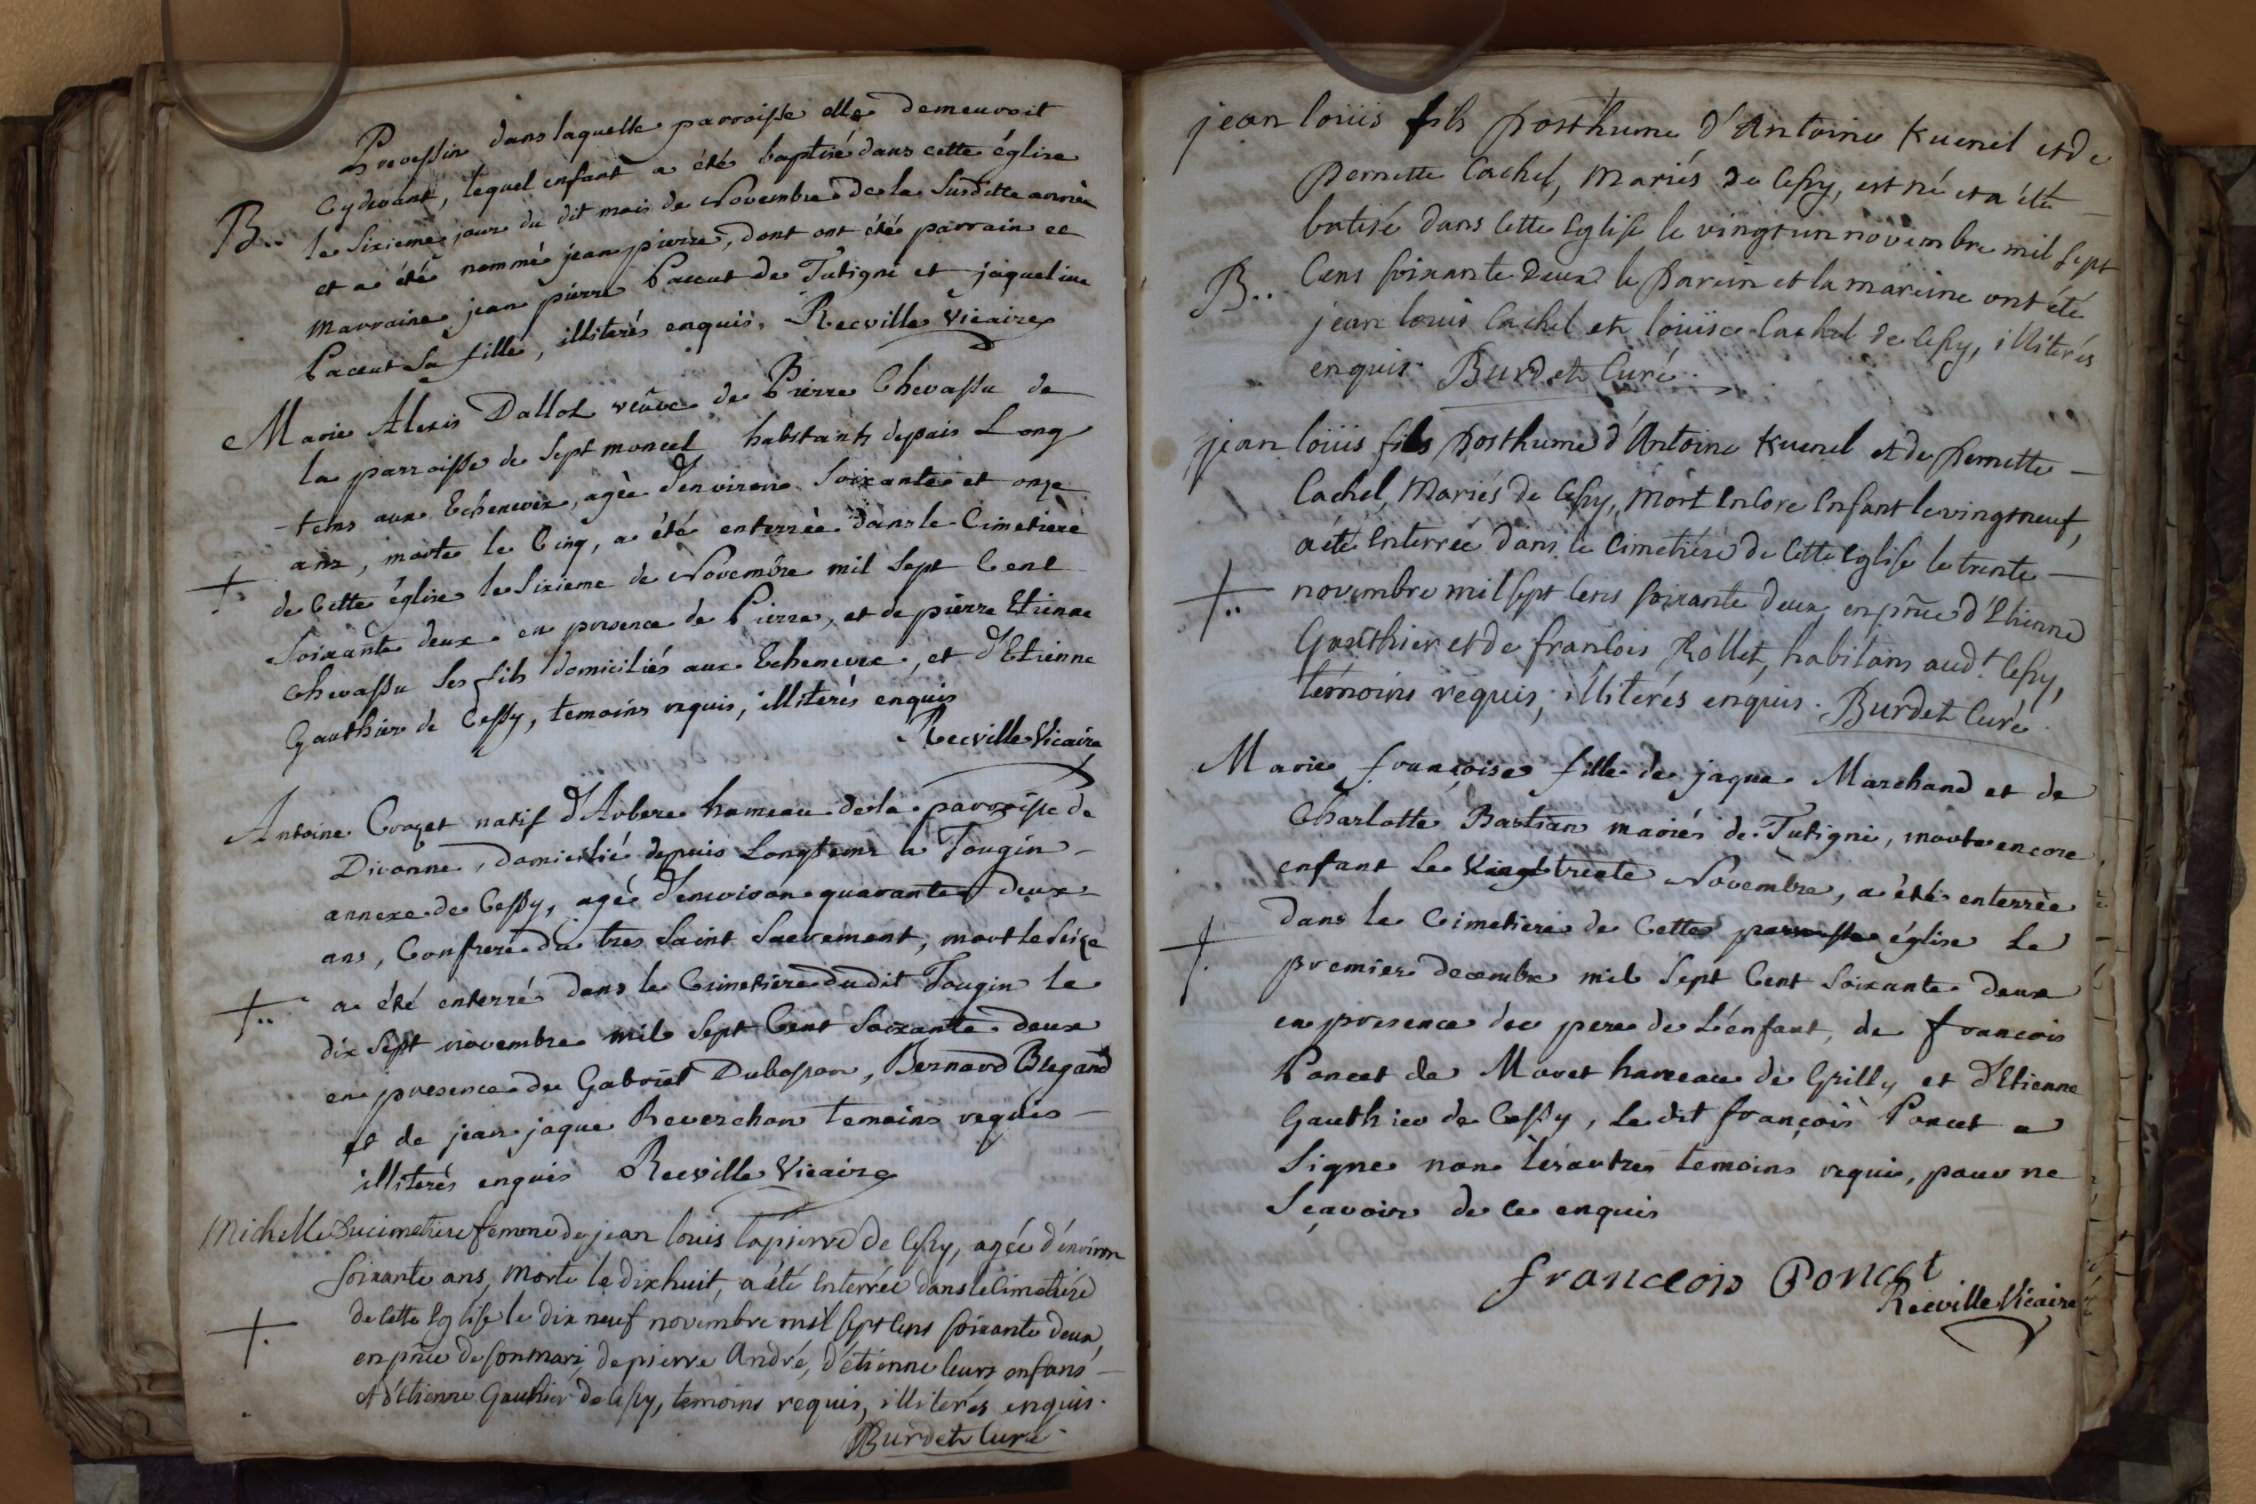 Prevessin dans laquelle parroisse elle demeuroit
cy devant, lequel enfant a été baptisé dans cette église
B.. le sixieme jour du dit mois de Novembre de la susditte année
et a été nommé jean pierre, dont ont été parrain et
marraine jean pierre Paccut de Tutigni et jaqueline
Paccut sa fille, illiterés enquis. Recville Vicaire
Marie Alexis Dallot veûve de Pierre Chevassu de
la parroisse de Sept moncel habitants depuis Long
-tems aux Echenevex, agèe d'environ Soixante et onze
ans, morte le Cinq, a été enterrèe dans le Cimetiere
de Cette église le Sixieme de Novembre mil Sept Cent
Soixante deux en presence de Pierre, et de pierre Etienne
Chevassu Ses fils domiciliés aux Echenevex, et d'Etienne
Gauthier de Cessy, temoins requis, illiterés enquis
Recville Vicaire
Antoine Crozet natif d'Arbere hameau de la parroisse de
Divonne, domicilié depuis Longtems à Tougin
annexe de Cessy, agé d'environ quarante deux
ans, Confrere du tres Saint Sacrement, mort le Seize
a été enterré dans le Cimetiere dudit Tougin le
dix Sept novembre mil Sept Cent Soixante deux
en presence de Gabriel Dubosson, Bernard Blegand
et de jean jaque Reverchon temoins requis
illiterés enquis Recville Vicaire
Michelle Ducimetiere femme de jean louis lapierre de Cessy, agée d'environ
soixante ans, morte le dix huit, a été Enterrée dans le Cimetiére
de Cette Eglise le dix neuf novembre mil sept Cens soixante deux,
en pñce de son mari, de pierre André, d'étienne leurs enfans
et d'étienne Gauthier de Cessy, temoins requis, illiterés enquis.
Burdet Curé
jean loüis fils Posthume d'Antoine Kuenel et de
Pernette Cachel, Mariés de Cessy, est né et a été
batisé dans Cette Eglise le vingt un novembre mil sept
B.. Cens soixante deux le Parein et la mareine ont été
jean louis Cachel et loüise Cachel de Cessy, illiterés
enquis. Burdet Curé.
jean loüis fils Posthume d'Antoine Kuenel et de Pernette
Cachel, Mariés de Cessy, Mort Encore Enfant le vingt neuf,
a été Enterrée dans le Cimetiére de Cette Eglise le trente
novembre mil sept Cens soixante deux, en pñce d'Etienne
Gauthier et de francois Rollet, habitans aud.t Cessy,
témoins réquis, illiterés enquis. Burdet Curé.
Marie françoise fille de jaque Marchand et de
Charlotte Bastian mariés de Tutigni, morte encore
enfant Le Vingt trente Novembre, a été enterrèe
dans le Cimetiere de Cette parroisse église Le
premier decembre mil Sept Cent Soixante deux
en presence du pere de L'enfant, de francois
Poncet de Movet hameau de Grilly et d'Etienne
Gauthier de Cessy, Le dit françois Poncet a
Signe non les autres temoins requis, pour ne
Sçavoir de ce enquis
francois Poncet
Recville Vicaire